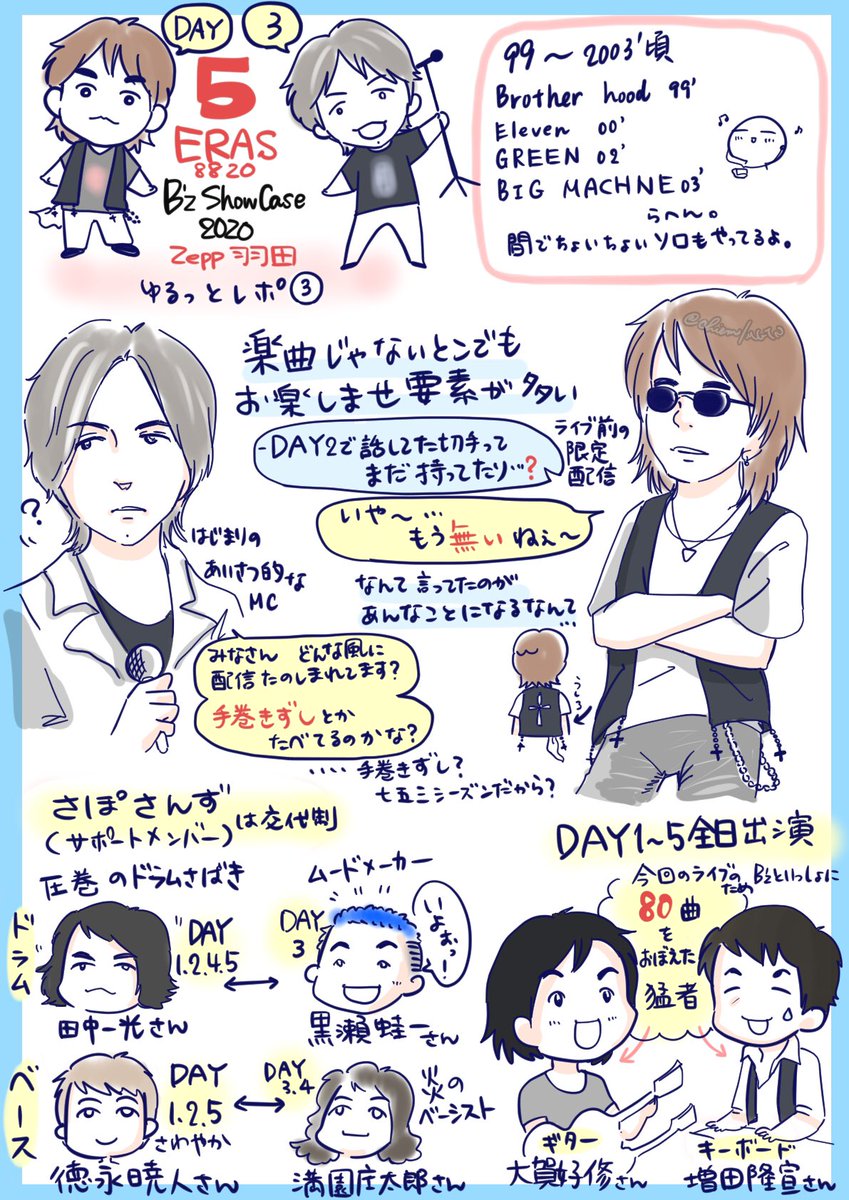 DAY 3
5
ERAS
8820
B'z ShowCase
2020
Zepp 羽田
ゆるっとレポ③
99〜2003'頃
Brother hood 99'
Eleven 00'
GREEN 02'
BIG MACHNE 03'
らへん。
間でちょいちょいソロもやってるよ。
楽曲じゃないとこでも
お楽しませ要素が多い
-DAY2で話してた切手って
まだ持ってたり…?
ライブ前の
限定
配信
いや〜…
もう無いねぇ〜
なんて言ってたのが
あんなことになるなんて
…
?
はじまりの
あいさつ的な
MC
みなさん どんな風に
配信たのしまれてます?
手巻きずしとか
たべてるのかな?
‥‥手巻きずし?
七五三シーズンだから?
うしろ
さぽさんず
(サポートメンバー)は交代制
圧巻のドラムさばき
ムードメーカー
ドラム
DAY
1.2.4.5
DAY
3
いよぉっ!
田中一光さん
黒瀬蛙一さん
ベース
DAY
1.2.5
さわやか
DAY
3.4
炎の
ベーシスト
徳永暁人さん
満園庄太郎さん
DAY1~5全日出演
今回のライブのため B'zといっしょに
80曲
を
おぼえた
猛者
ギター
大賀好修さん
キーボード
増田隆宣さん